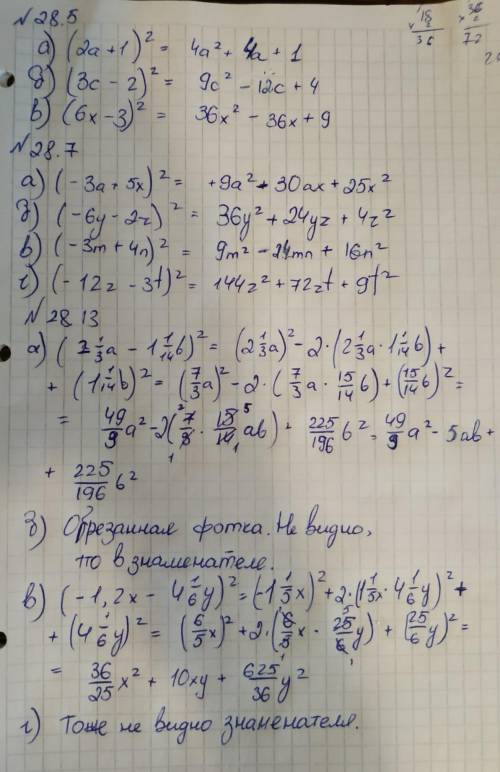 №28.5
а) (2a+1)² = 4a² + 4a + 1
б) (3c-2)² = 9c² - 12c + 4
в) (6x-3)² = 36x² - 36x + 9
№28.7
а) (-3a+5x)² = +9a² - 30ax + 25x²
б) (-6y-2z)² = 36y² + 24yz + 4z²
в) (-3m+4n)² = 9m² - 24mn + 16n²
г) (-12z - 3t)² = 144z² + 72zt + 9t²
№28 13
а) (2 1/3a - 1 1/14b)² = (2 1/3a)² - 2·(2 1/3a · 1 1/14b) +
+ (1 1/14b)² = (7/3a)² - 2·(7/3a · 15/14b) + (15/14b)² =
= 49/9a² - 2(7/3 · 15/14ab) + 225/196b² = 49/9a² - 5ab +
+ 225/196b²
б) Обрезанная фотка. Не видно,
что в знаменателе.
в) (-1,2x - 4 1/6y)² = (-1 1/5x)² + 2·(1 1/5x · 4 1/6y)² +
+ (4 1/6y)² = (6/5x)² + 2·(6/5x · 25/6y) + (25/6y)² =
= 36/25x² + 10xy + 625/36y²
г) Тоже не видно знаменателя.